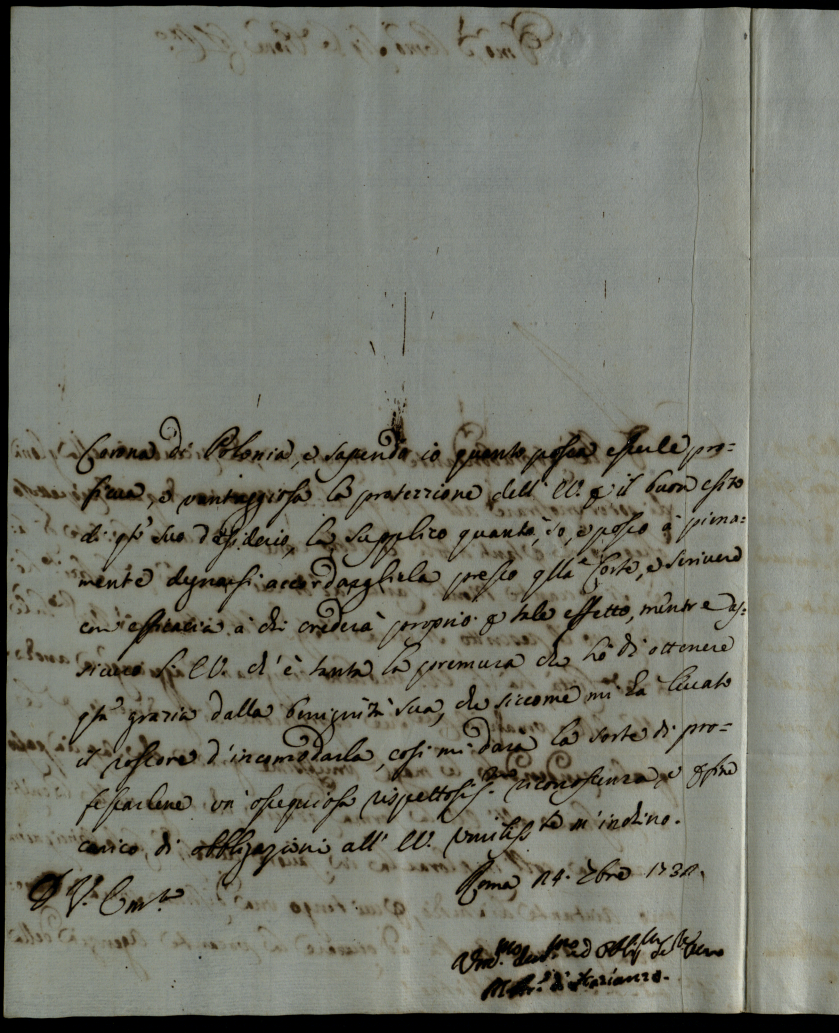 Corona di Polonia, e sapendo io quanto possa esserle pro=
ficua, e vantaggiosa la protezzione dell' E.V. p il buon esito
di qsto suo desiderio, la supplico quanto sò, e posso à piena=
mente degnarsi accordargliela presso qlla Corte, e scrivere
con efficacia à chi crederà proprio p tale effetto, mentre as=
sicuro l'E.V. ch'è tanta la premura che hò di ottenere
qsta grazia dalla benignità sua, che siccome mi hà levato
il rossore d'incomodarla, così mi darà la sorte di pro=
fessarlene un' ossequiosa rispettosis.ma riconoscenza, e
carico di obbligazioni all' E.V. umilis.te m'inchino.
D V. Em.za
Roma 24. Xbre
Um.mo dev.mo ed